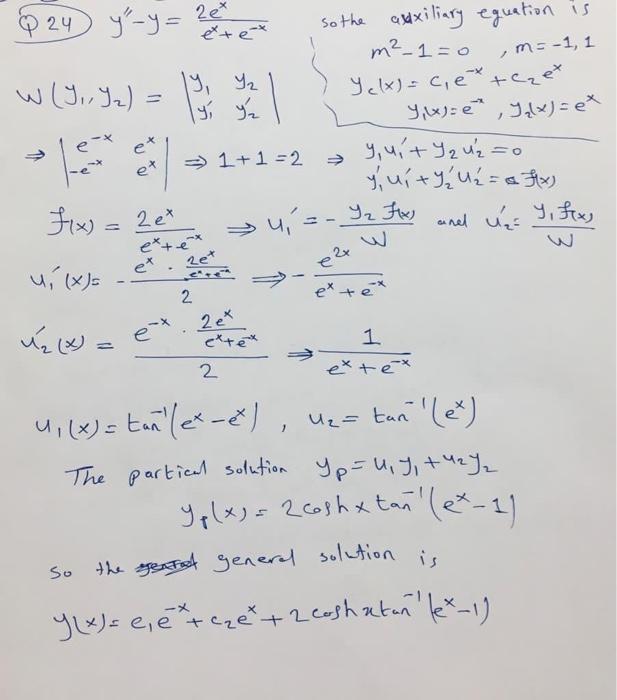 Q 24) y''-y = 2eˣ / eˣ+e⁻ˣ
so the auxiliary equation is
m²-1=0 , m=-1,1
y_c(x) = c₁e⁻ˣ + c₂eˣ
y₁(x)=e⁻ˣ , y₂(x)=eˣ
W(y₁,y₂) = |y₁ y₂ y₁' y₂'|
⇒ |e⁻ˣ eˣ -e⁻ˣ eˣ| ⇒ 1+1=2 ⇒ y₁u₁'+y₂u₂'=0
y₁'u₁'+y₂'u₂'= f(x)
f(x) = 2eˣ / eˣ+e⁻ˣ ⇒ u₁' = - y₂ f(x) / W and u₂' = y₁ f(x) / W
u₁'(x)= - eˣ · 2eˣ / eˣ+e⁻ˣ / 2 ⇒ - e²ˣ / eˣ+e⁻ˣ
u₂'(x) = e⁻ˣ · 2eˣ / eˣ+e⁻ˣ / 2 ⇒ 1 / eˣ+e⁻ˣ
u₁(x) = tan⁻¹(eˣ-eˣ) , u₂ = tan⁻¹(eˣ)
The partical solution y_p = u₁y₁+u₂y₂
y_p(x) = 2coshx tan⁻¹(eˣ-1)
So the general solution is
y(x)= c₁e⁻ˣ+c₂eˣ+2coshxtan⁻¹(eˣ-1)